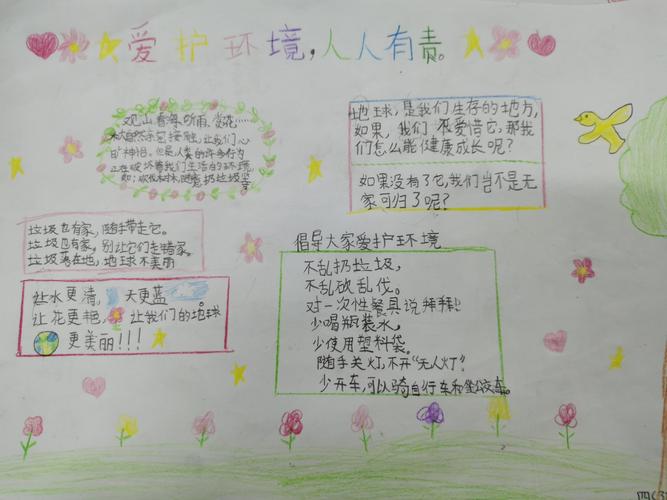 爱护环境,人人有责。
观山看海、听雨、赏花……
大自然亲密接触,让我们心
旷神怡。但是人类的许多行为
正在破坏着我们生活的环境,
如:砍伐树木,随意扔垃圾等
地球,是我们生存的地方,
如果,我们不爱惜它,那我
们怎么能健康成长呢?
如果没有了它,我们岂不是无
家可归了呢?
垃圾也有家,随手带走它。
垃圾也有家,别让它们走错家。
垃圾落在地,地球不美丽
让水更清,天更蓝
让花更艳,让我们的地球
更美丽!!!
倡导大家爱护环境
不乱扔垃圾,
不乱砍乱伐。
对一次性餐具说拜拜!
少喝瓶装水,
少使用塑料袋。
随手关灯,不开“无人灯”?
少开车,可以骑自行车和坐公交车。
四(3